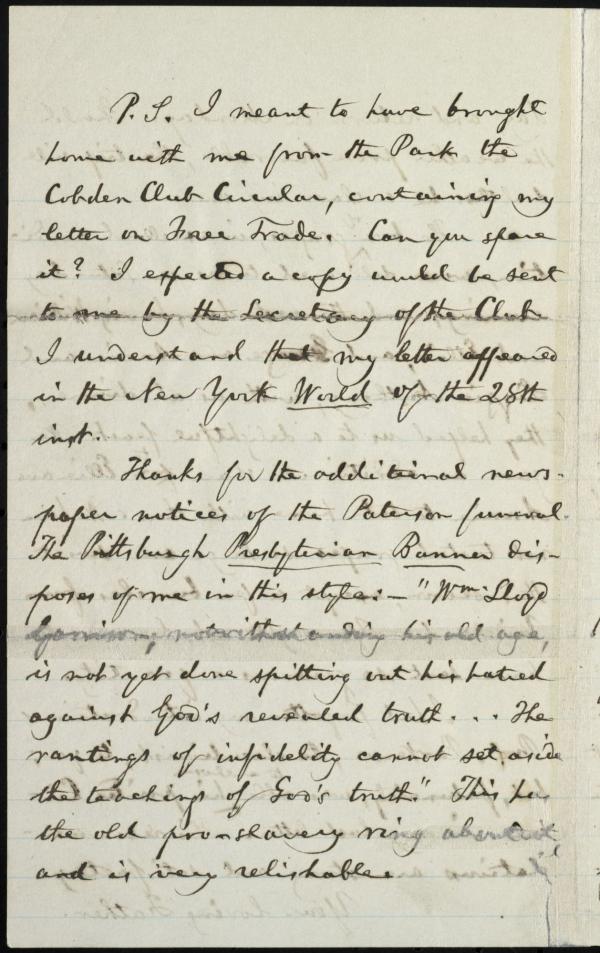 P.S. I meant to have brought
home with me from the Park the
Cobden Club Circular, containing my
letter on Free Trade. Can you spare
it? I expected a copy would be sent
to me by the Secretary of the Club.
I understand that my letter appeared
in the New York World of the 28th
inst.
Thanks for the additional news-
paper notices of the Paterson funeral.
The Pittsburgh Presbyterian Banner dis-
poses of me in this style:— "Wm. Lloyd
Garrison, notwithstanding his old age,
is not yet done spitting out his hatred
against God's revealed truth . . . The
rantings of infidelity cannot set aside
the teachings of God's truth." This has
the old pro-slavery ring about it,
and is very relishable.